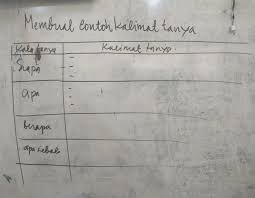 Membuat Contoh Kalimat tanya
Kata tanya Kalimat tanya.
Siapa -
-
-
apa -
-
-
berapa
apa sebab